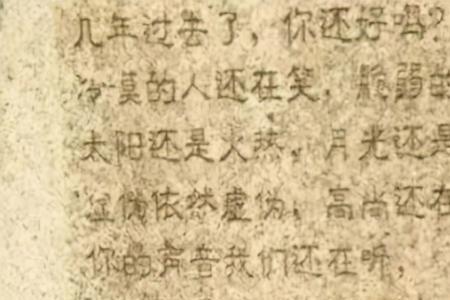 几年过去了，你还好吗？
冷漠的人还在笑，脆弱的
太阳还是火热，月光还是
虚伪依然虚伪，高尚还在
你的声音我们还在听，